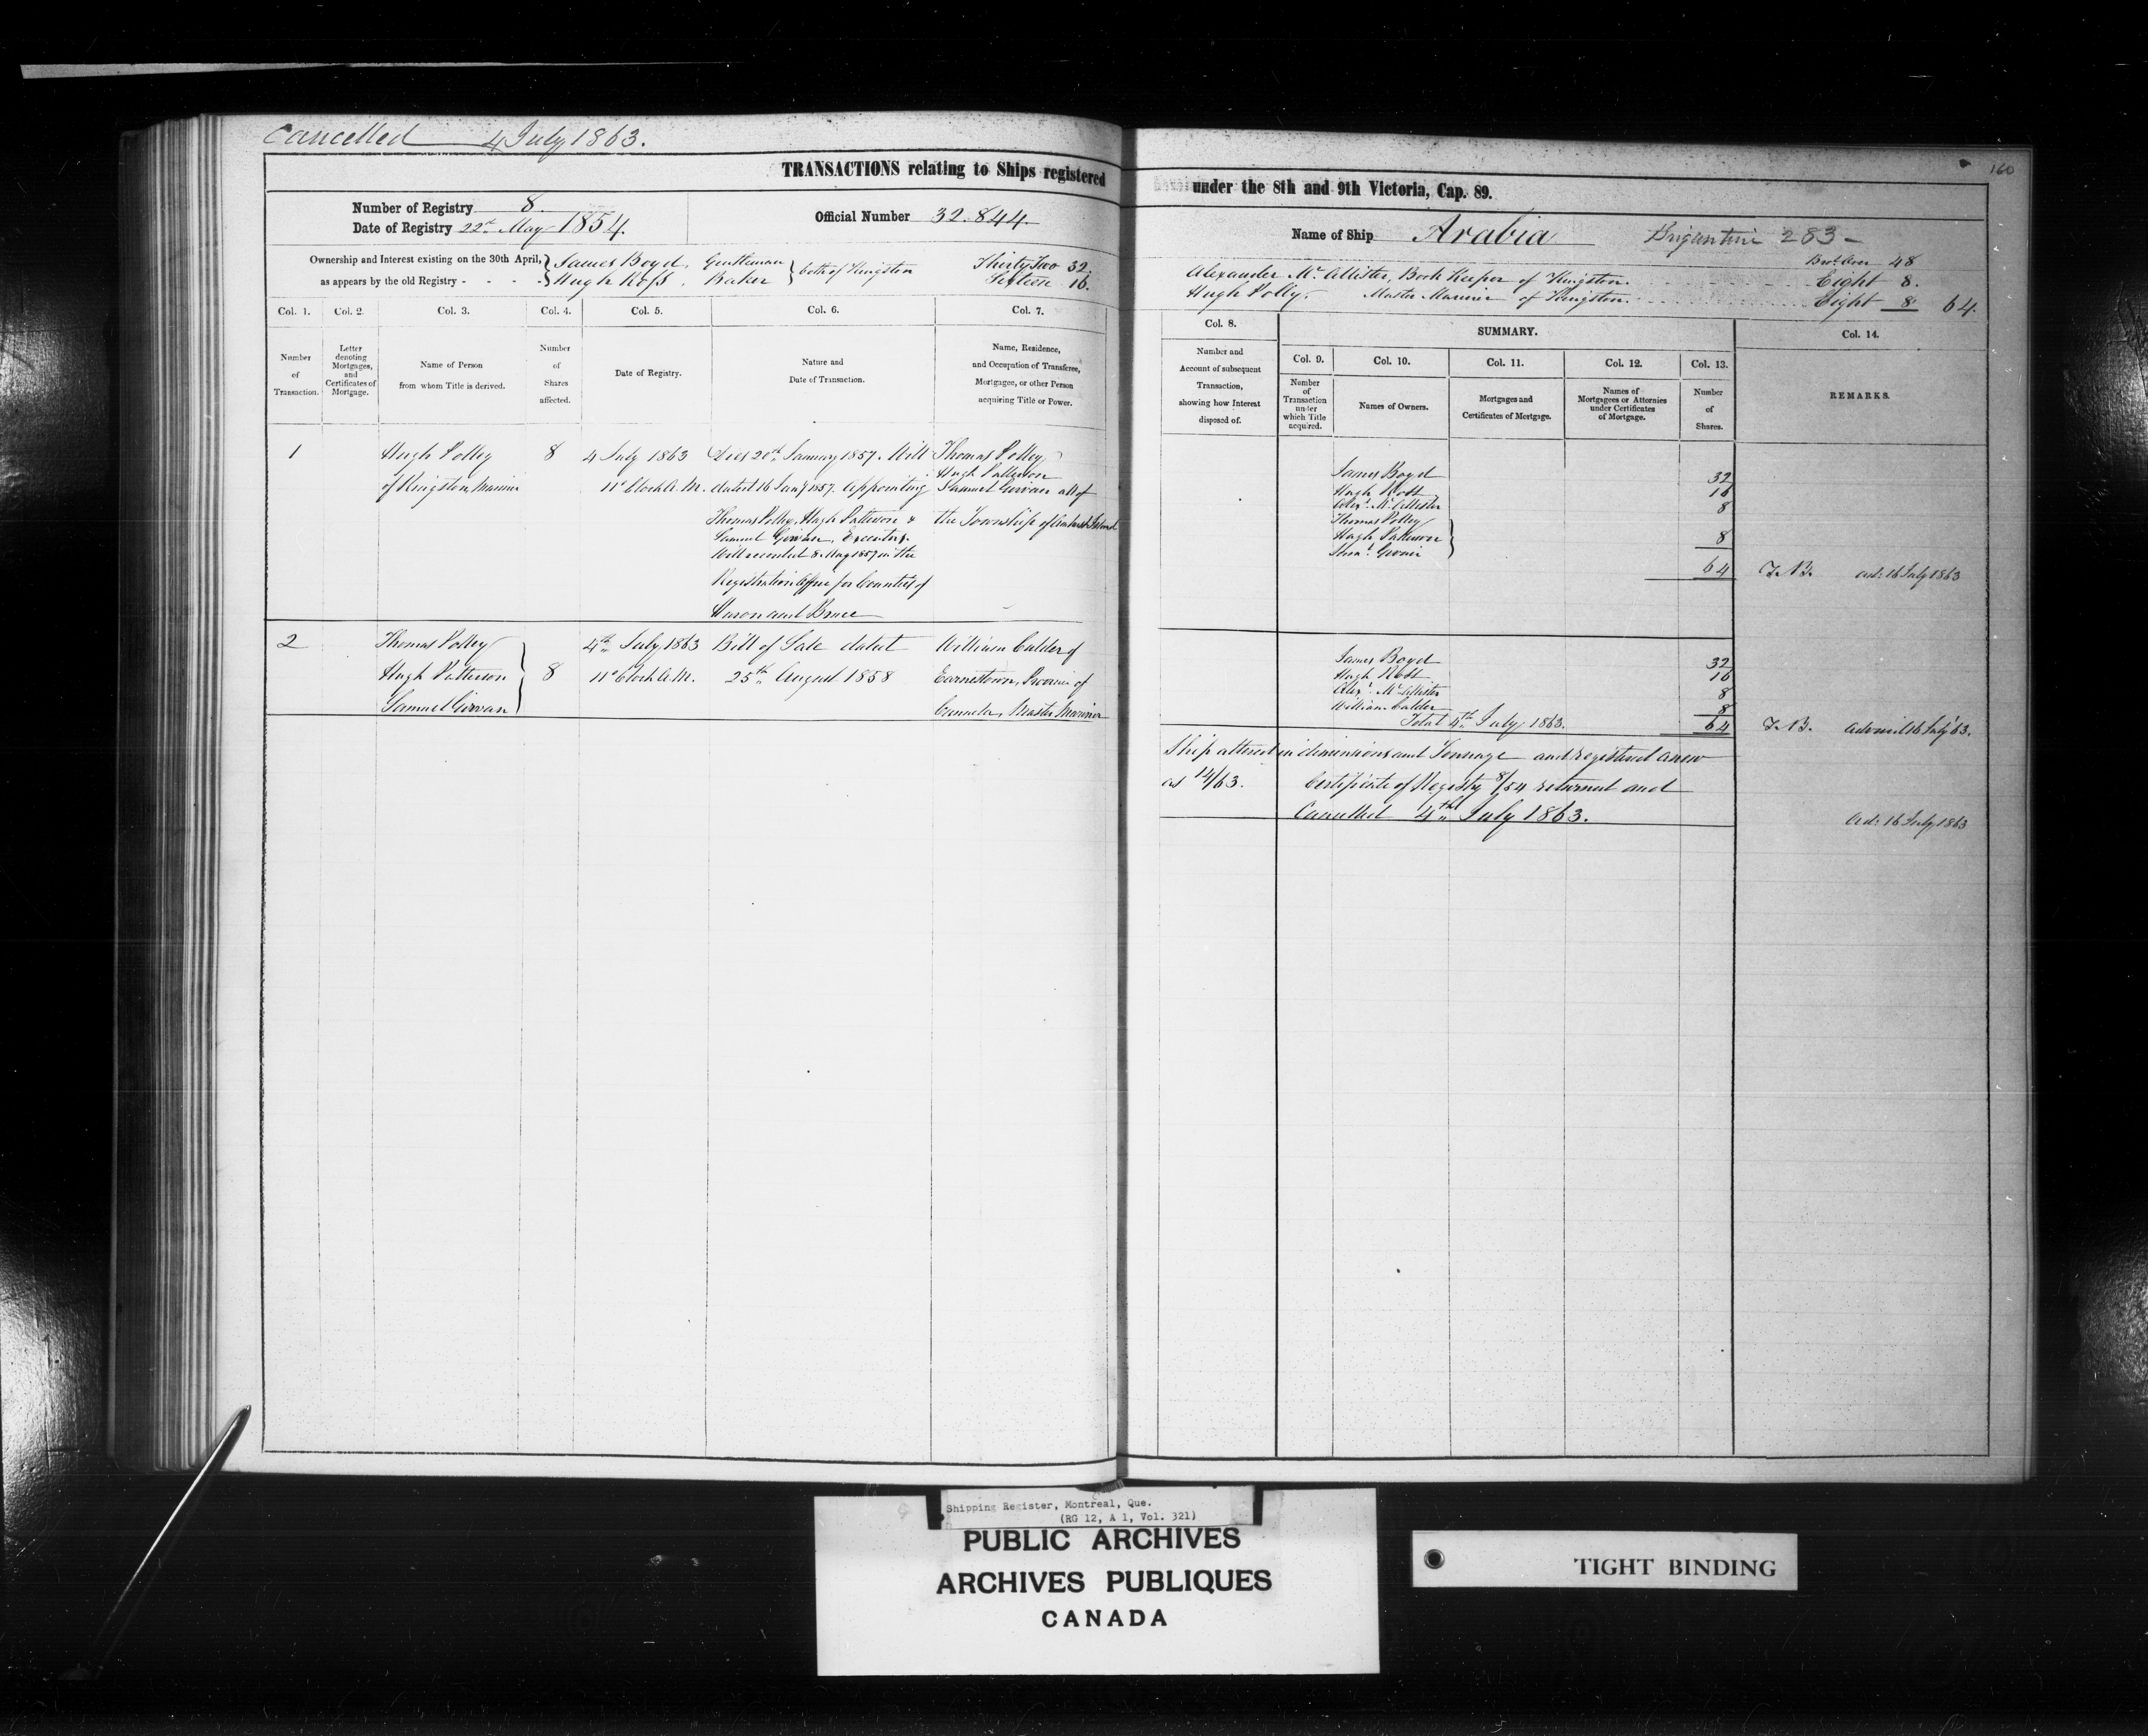 Cancelled 4 July 1863.
160
TRANSACTIONS relating to Ships registered under the 8th and 9th Victoria, Cap. 89.
Number of Registry 8.
Date of Registry 22nd May 1854.
Official Number 32.844.
Name of Ship Arabia Brigantine 283 -
Ownership and Interest existing on the 30th April,
as appears by the old Registry - - - -
James Boyd, Gentleman
Hugh Ross, Baker
both of Kingston
Thirty Two 32.
Sixteen 16.
Brot. Over 48
Alexander Mc Allister, Book Keeper of Kingston. Eight 8.
Hugh Polley, Master Mariner of Kingston. Eight 8 64.
Col. 1.
Number
of
Transaction.
Col. 2.
Letter
denoting
Mortgages,
and
Certificates of
Mortgage.
Col. 3.
Name of Person
from whom Title is derived.
Col. 4.
Number
of
Shares
affected.
Col. 5.
Date of Registry.
Col. 6.
Nature and
Date of Transaction.
Col. 7.
Name, Residence,
and Occupation of Transferee,
Mortgagee, or other Person
acquiring Title or Power.
Col. 8.
Number and
Account of subsequent
Transaction,
showing how Interest
disposed of.
SUMMARY.
Col. 9.
Number
of
Transaction
under
which Title
acquired.
Col. 10.
Names of Owners.
Col. 11.
Mortgages and
Certificates of Mortgage.
Col. 12.
Names of
Mortgagees or Attornies
under Certificates
of Mortgage.
Col. 13.
Number
of
Shares.
Col. 14.
REMARKS.
1
Hugh Polley
of Kingston, Mariner
8
4 July 1863
11 o'Clock A.M.
Died 20th January 1857. Will
dated 16 Jany 1857. appointing
Thomas Polley, Hugh Patterson &
Samuel Girvan, Executors.
Will recorded 8 May 1857 in the
Registration Office for Counties of
Huron and Bruce
Thomas Polley,
Hugh Patterson
Samuel Girvan all of
the Township of Amherst Island
James Boyd 32
Hugh Ross 16
Alexr. Mc Allister 8
Thomas Polley
Hugh Patterson 8
Saml. Girvan
64
Ad: 16 July 1863
2
Thomas Polley
Hugh Patterson
Samuel Girvan
8
4th July 1863
11 o'Clock A.M.
Bill of Sale dated
25th August 1858
William Calder of
Earnestown, Province of
Canada, Master Mariner
James Boyd 32
Hugh Ross 16
Alexr. Mc Allister 8
William Calder 8
Total 4th July 1863. 64
Advised 16 July '63.
Ship altered in dimensions and Tonnage and registered anew
as 14/63. Certificate of Registry 8/54 returned and
Cancelled 4th July 1863.
Ad: 16 July 1863
Shipping Register, Montreal, Que.
(RG 12, A 1, Vol. 321)
PUBLIC ARCHIVES
ARCHIVES PUBLIQUES
CANADA
TIGHT BINDING